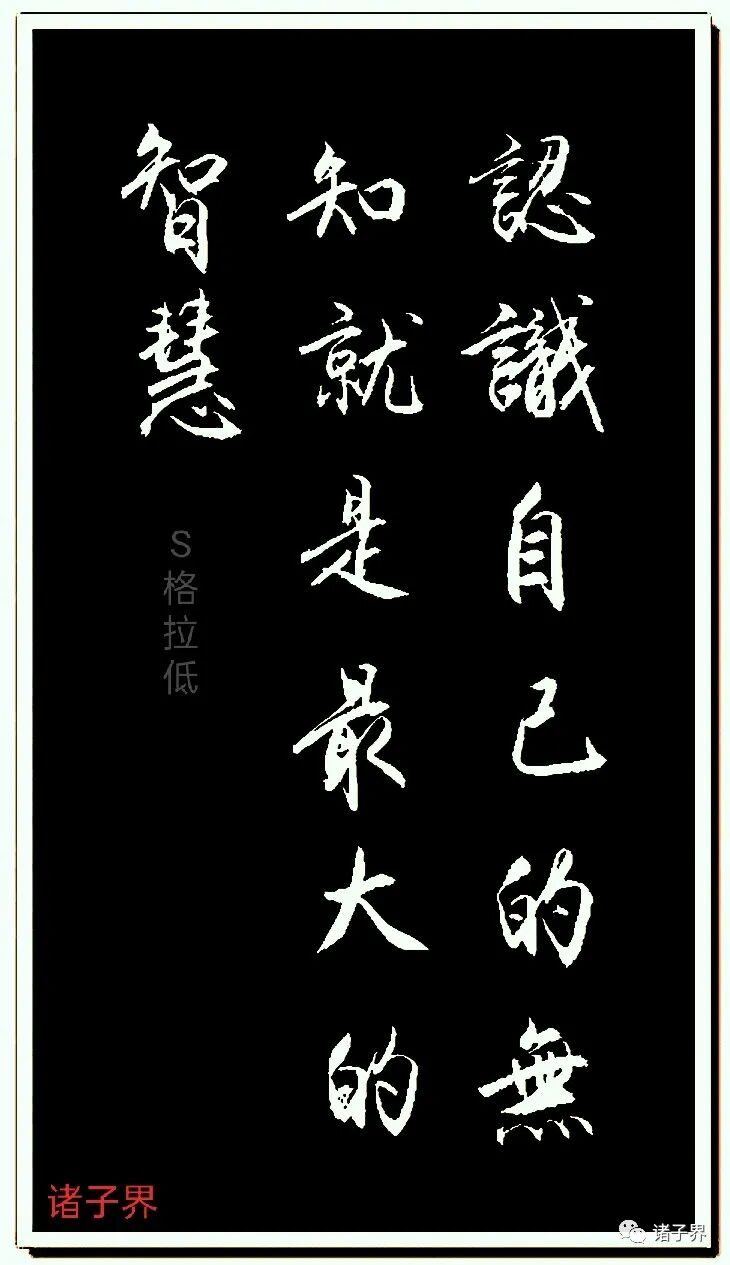 認識自己的無
知就是最大的
智慧
S格拉低
诸子界
诸子界